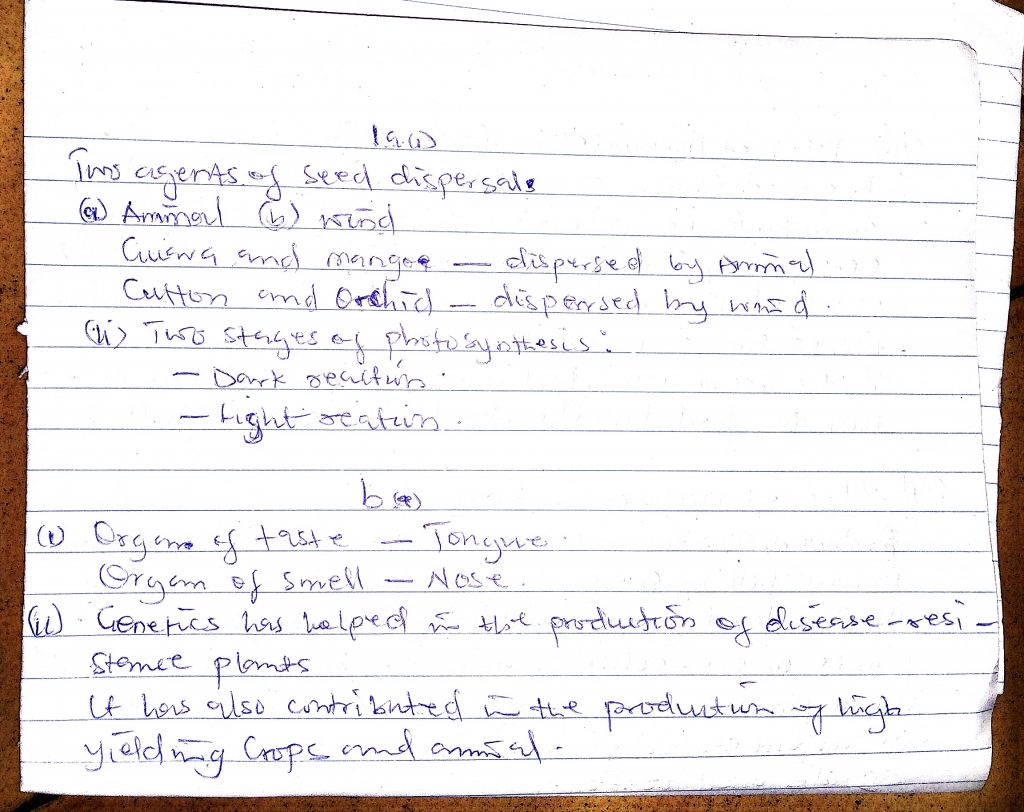 1a.(i)
Two agents of seed dispersal:
(a) Animal (b) wind
Guava and mangoe — dispersed by Animal
Cutton and Orchid — dispersed by wind.
(ii) Two stages of photosynthesis:
— Dark reaction.
— Light reation.
b
(i) Organ of taste — Tongue.
Organ of smell — Nose.
(ii). Genetics has helped in the production of disease-resi-
stance plants
It has also contributed in the production of high
yielding Crops and animal.